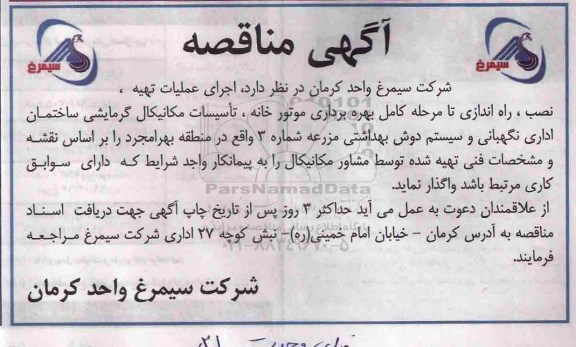 آگهی مناقصه
سیمرغ
سیمرغ
شرکت سیمرغ واحد کرمان در نظر دارد، اجرای عملیات تهیه ،
نصب ، راه اندازی تا مرحله کامل بهره برداری موتور خانه ، تأسیسات مکانیکال گرمایشی ساختمان
اداری نگهبانی و سیستم دوش بهداشتی مزرعه شماره ۳ واقع در منطقه بهرامجرد را بر اساس نقشه
و مشخصات فنی تهیه شده توسط مشاور مکانیکال را به پیمانکار واجد شرایط که دارای سوابق
کاری مرتبط باشد واگذار نماید.
ParsNamadData
از علاقمندان دعوت به عمل می آید حداکثر ۳ روز پس از تاریخ چاپ آگهی جهت دریافت اسناد
مناقصه به آدرس کرمان – خیابان امام خمینی(ره)– نبش کوچه ۲۷ اداری شرکت سیمرغ مراجعه
فرمایند.
شرکت سیمرغ واحد کرمان